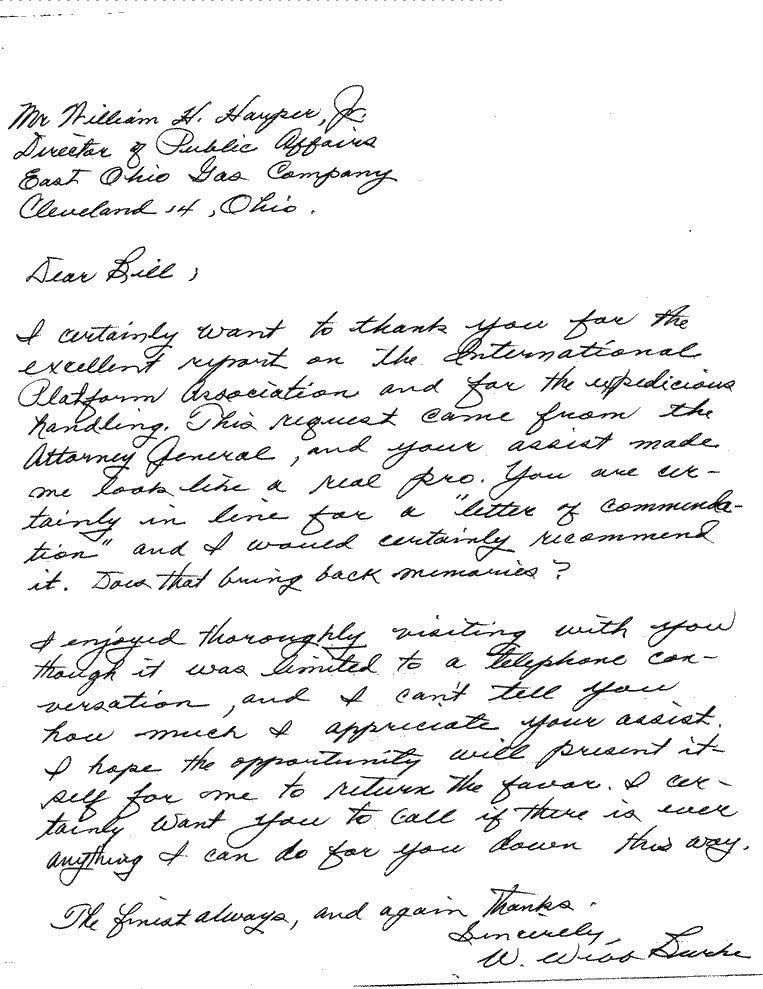 Mr William H. Harper, Jr.
Director of Public Affairs
East Ohio Gas Company
Cleveland 14, Ohio.
Dear Bill,
I certainly want to thank you for the
excellent report on the International
Platform Association and for the expedicious
handling. This request came from the
Attorney General, and your assist made
me look like a real pro. You are cer-
tainly in line for a "letter of commenda-
tion" and I would certainly recommend
it. Does that bring back memories?
I enjoyed thoroughly visiting with you
though it was limited to a telephone con-
versation, and I can't tell you
how much I appreciate your assist.
I hope the opportunity will present it-
self for me to return the favor. I cer-
tainly want you to call if there is ever
anything I can do for you down this way.
The finest always, and again thanks.
Sincerely,
W. Webb Burke